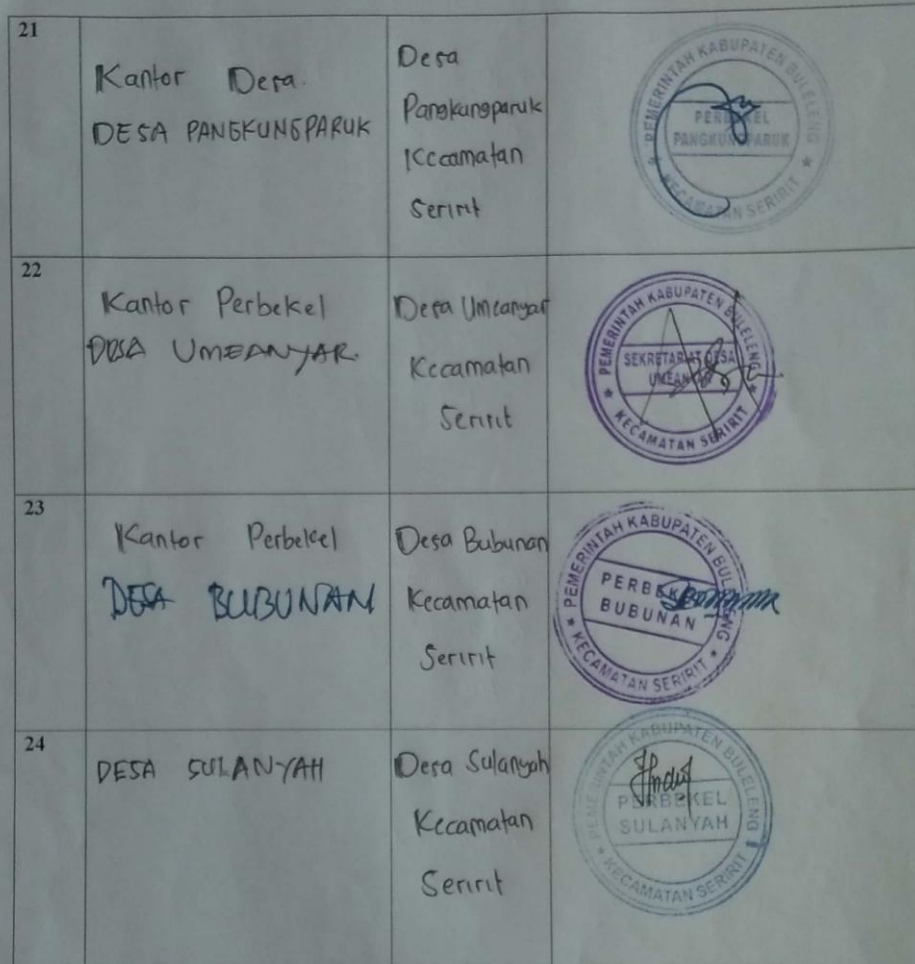 21
Kantor Desa.
DESA PANGKUNGPARUK
Desa
Pangkungparuk
Kecamatan
Seririt
PEMERINTAH KABUPATEN BULELENG
PERBEKEL
PANGKUNGPARUK
KECAMATAN SERIRIT
22
Kantor Perbekel
DESA UMEANYAR
Desa Umeanyar
Kecamatan
Seririt
PEMERINTAH KABUPATEN BULELENG
SEKRETARIAT DESA
UMEANYAR
KECAMATAN SERIRIT
23
Kantor Perbekel
DESA BUBUNAN
Desa Bubunan
Kecamatan
Seririt
PEMERINTAH KABUPATEN BULELENG
PERBEKEL
BUBUNAN
KECAMATAN SERIRIT
24
DESA SULANYAH
Desa Sulanyah
Kecamatan
Seririt
PEMERINTAH KABUPATEN BULELENG
PERBEKEL
SULANYAH
KECAMATAN SERIRIT